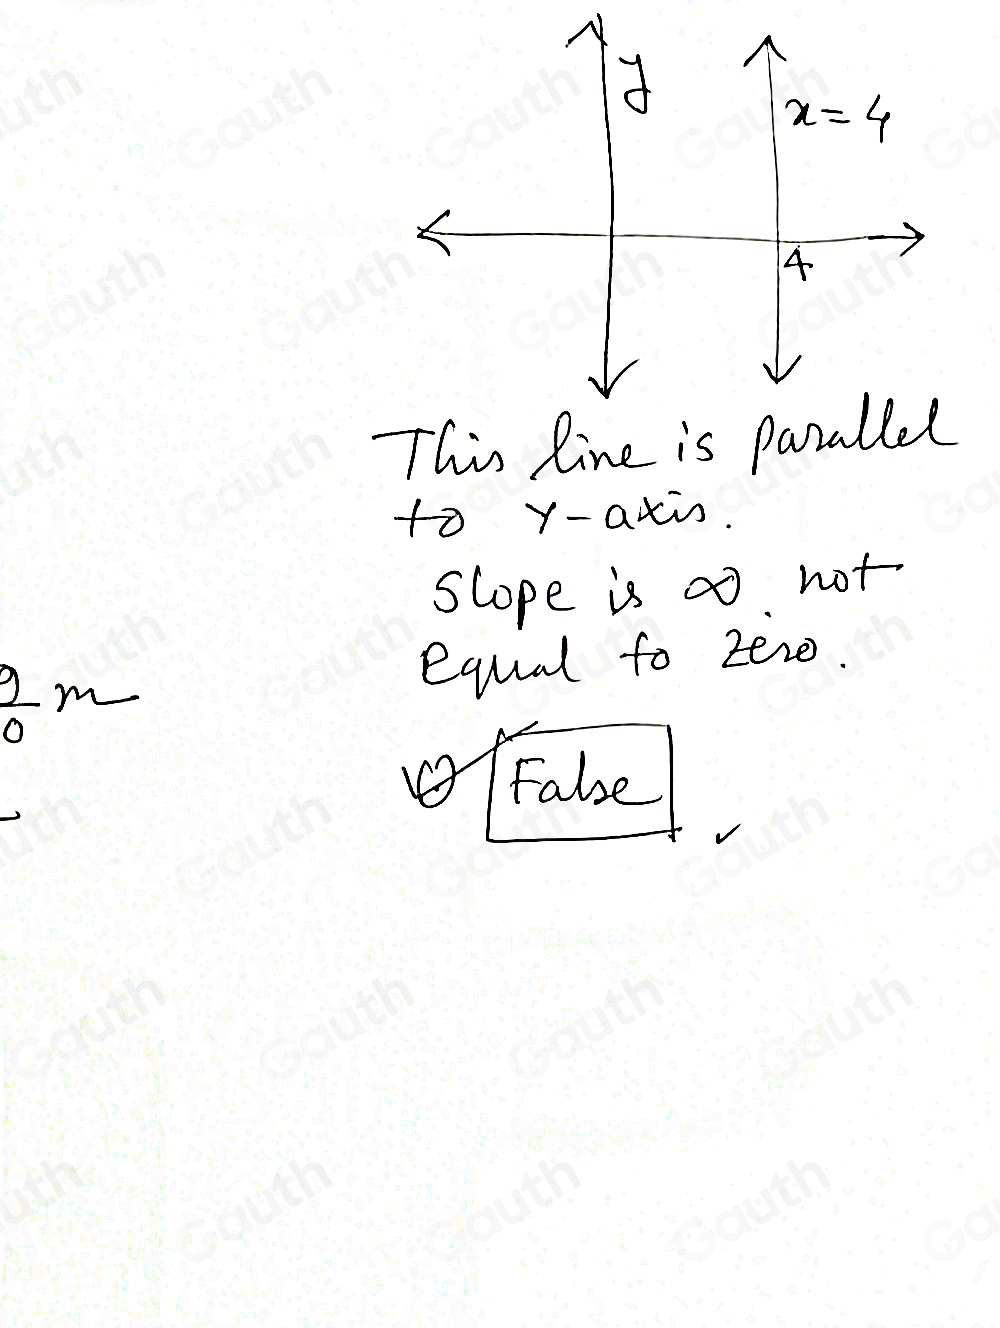 y
x = 4
4
This line is parallel
to Y-axis.
Slope is ∞. not
equal to zero.
9/0 m
False